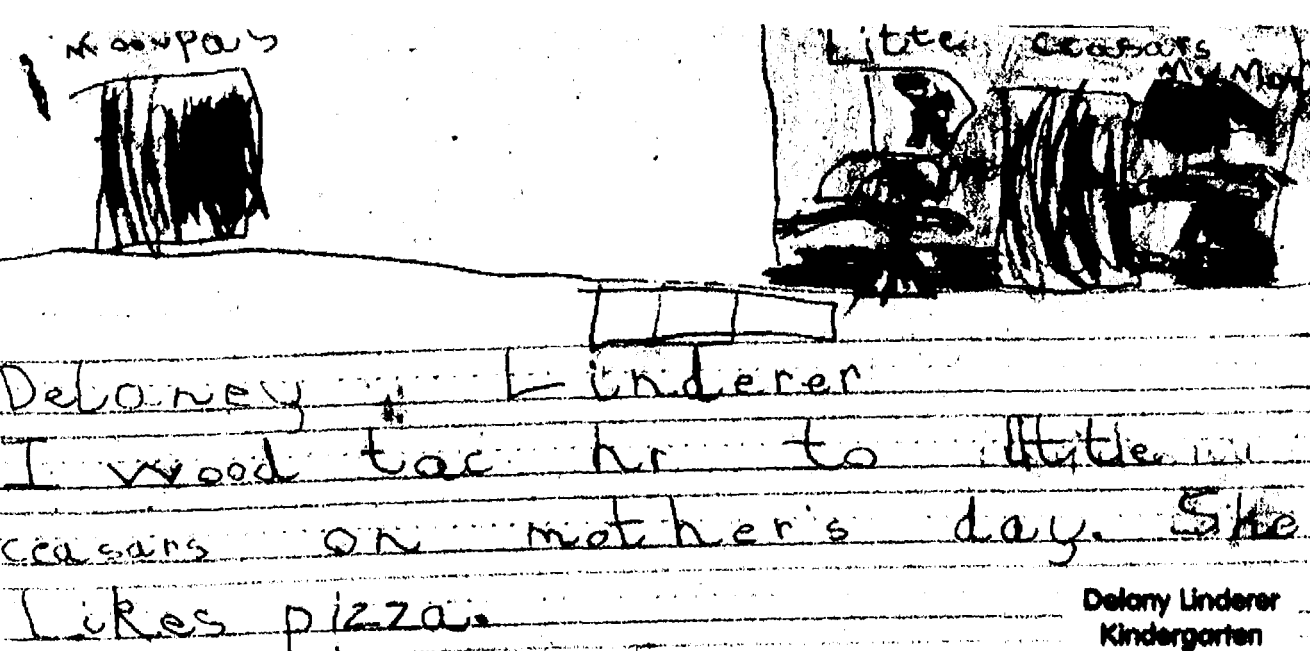 Litte ceasars
My Mom
Delaney Linderer
I wood tac hr to little
ceasars on mother's day. She
likes pizza.
Delany Linderer
Kindergarten